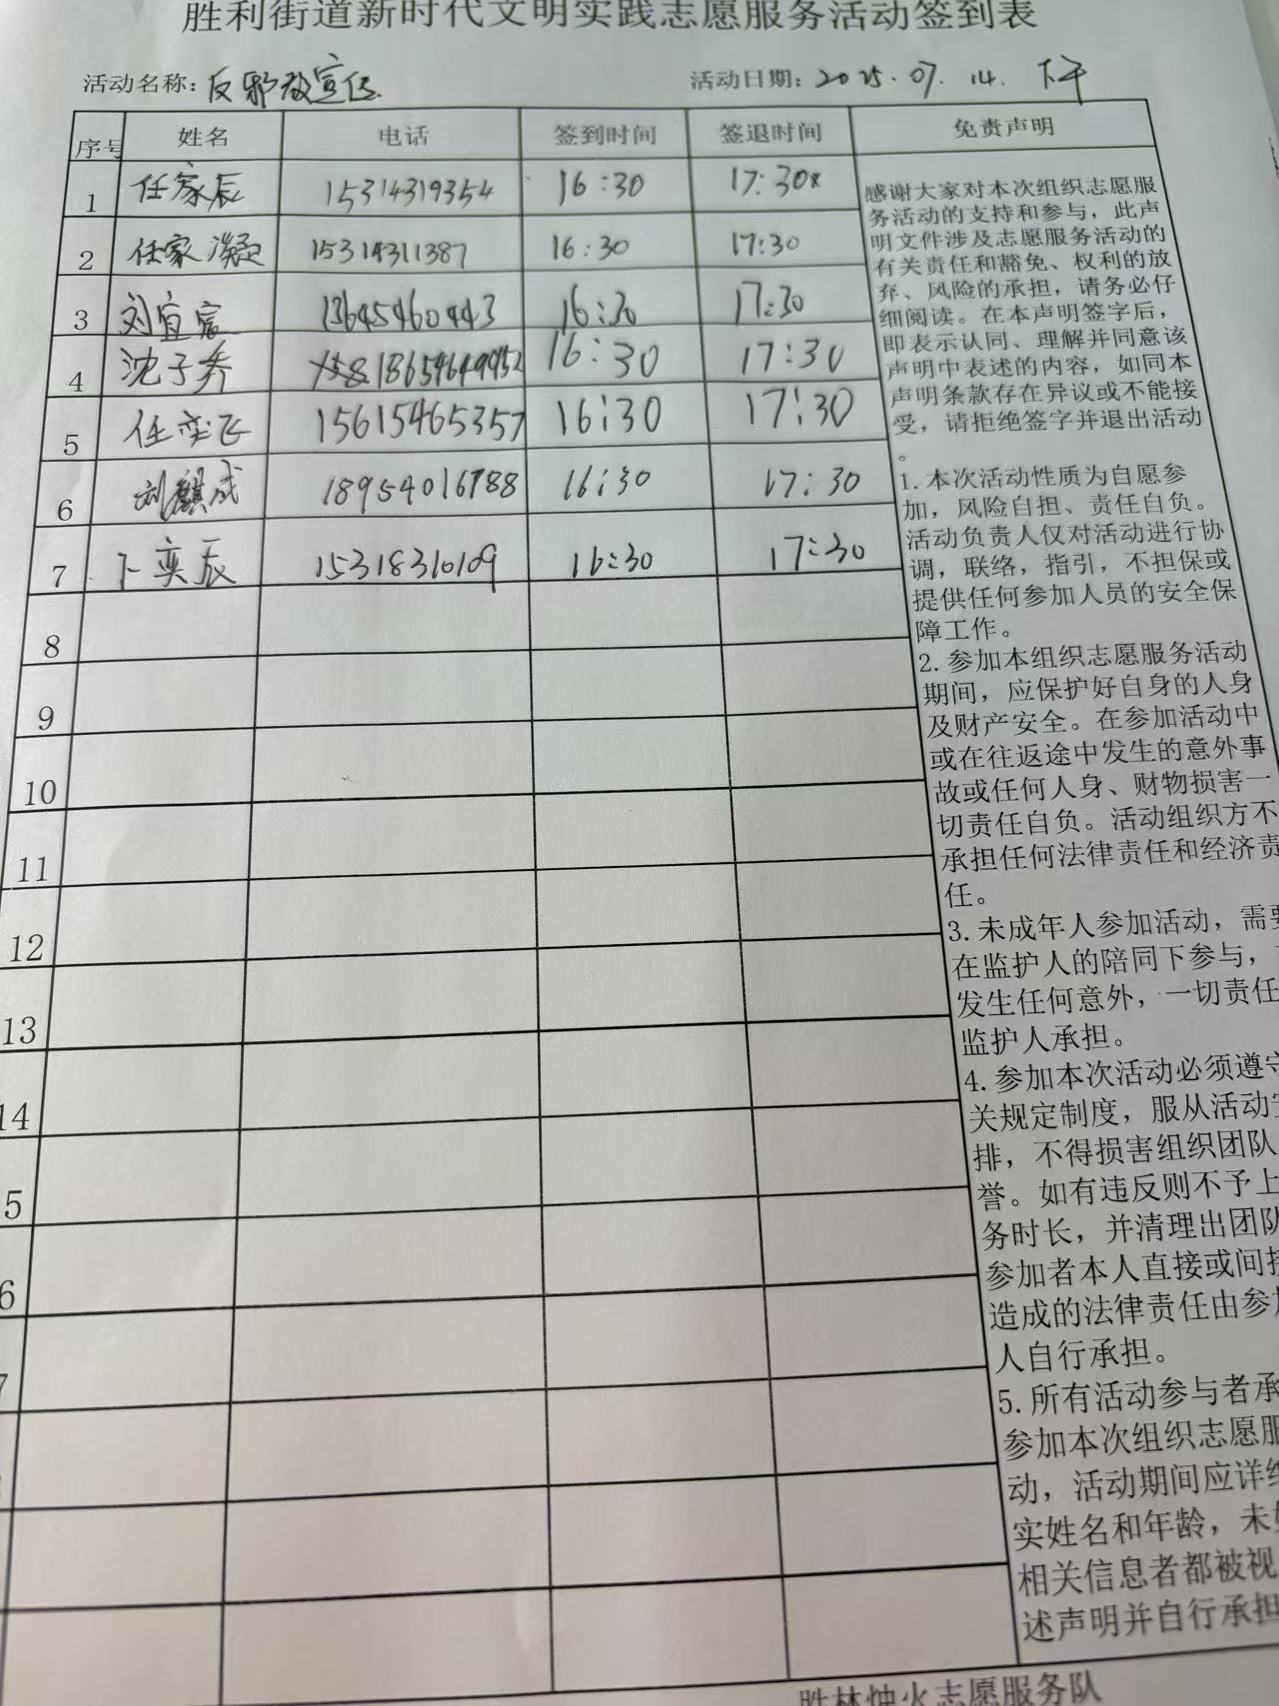 胜利街道新时代文明实践志愿服务活动签到表
活动名称：反邪教宣传 活动日期：2025.07.14.下午
序号 姓名 电话 签到时间 签退时间 免责声明
1 任家辰 15314319354 16:30 17:30
2 任家凝 15314311387 16:30 17:30
3 刘宜宸 13645460443 16:30 17:30
4 沈子乔 16:30 17:30
5 任奕飞 15615465357 16:30 17:30
6 刘麒成 18954016788 16:30 17:30
7 卞奕辰 15318310109 16:30 17:30
8
9
10
11
12
13
14
5
6
7
感谢大家对本次组织志愿服
务活动的支持和参与，此声
明文件涉及志愿服务活动的
有关责任和豁免、权利的放
弃、风险的承担，请务必仔
细阅读。在本声明签字后，
即表示认同、理解并同意该
声明中表述的内容，如同本
声明条款存在异议或不能接
受，请拒绝签字并退出活动
。
1.本次活动性质为自愿参
加，风险自担、责任自负。
活动负责人仅对活动进行协
调，联络，指引，不担保或
提供任何参加人员的安全保
障工作。
2.参加本组织志愿服务活动
期间，应保护好自身的人身
及财产安全。在参加活动中
或在往返途中发生的意外事
故或任何人身、财物损害一
切责任自负。活动组织方不
承担任何法律责任和经济责
任。
3.未成年人参加活动，需要
在监护人的陪同下参与，
发生任何意外，一切责任
监护人承担。
4.参加本次活动必须遵守
关规定制度，服从活动安
排，不得损害组织团队
誉。如有违反则不予上
务时长，并清理出团队
参加者本人直接或间接
造成的法律责任由参加
人自行承担。
5.所有活动参与者承
参加本次组织志愿服
动，活动期间应详细
实姓名和年龄，未如
相关信息者都被视
述声明并自行承担
胜林烛火志愿服务队